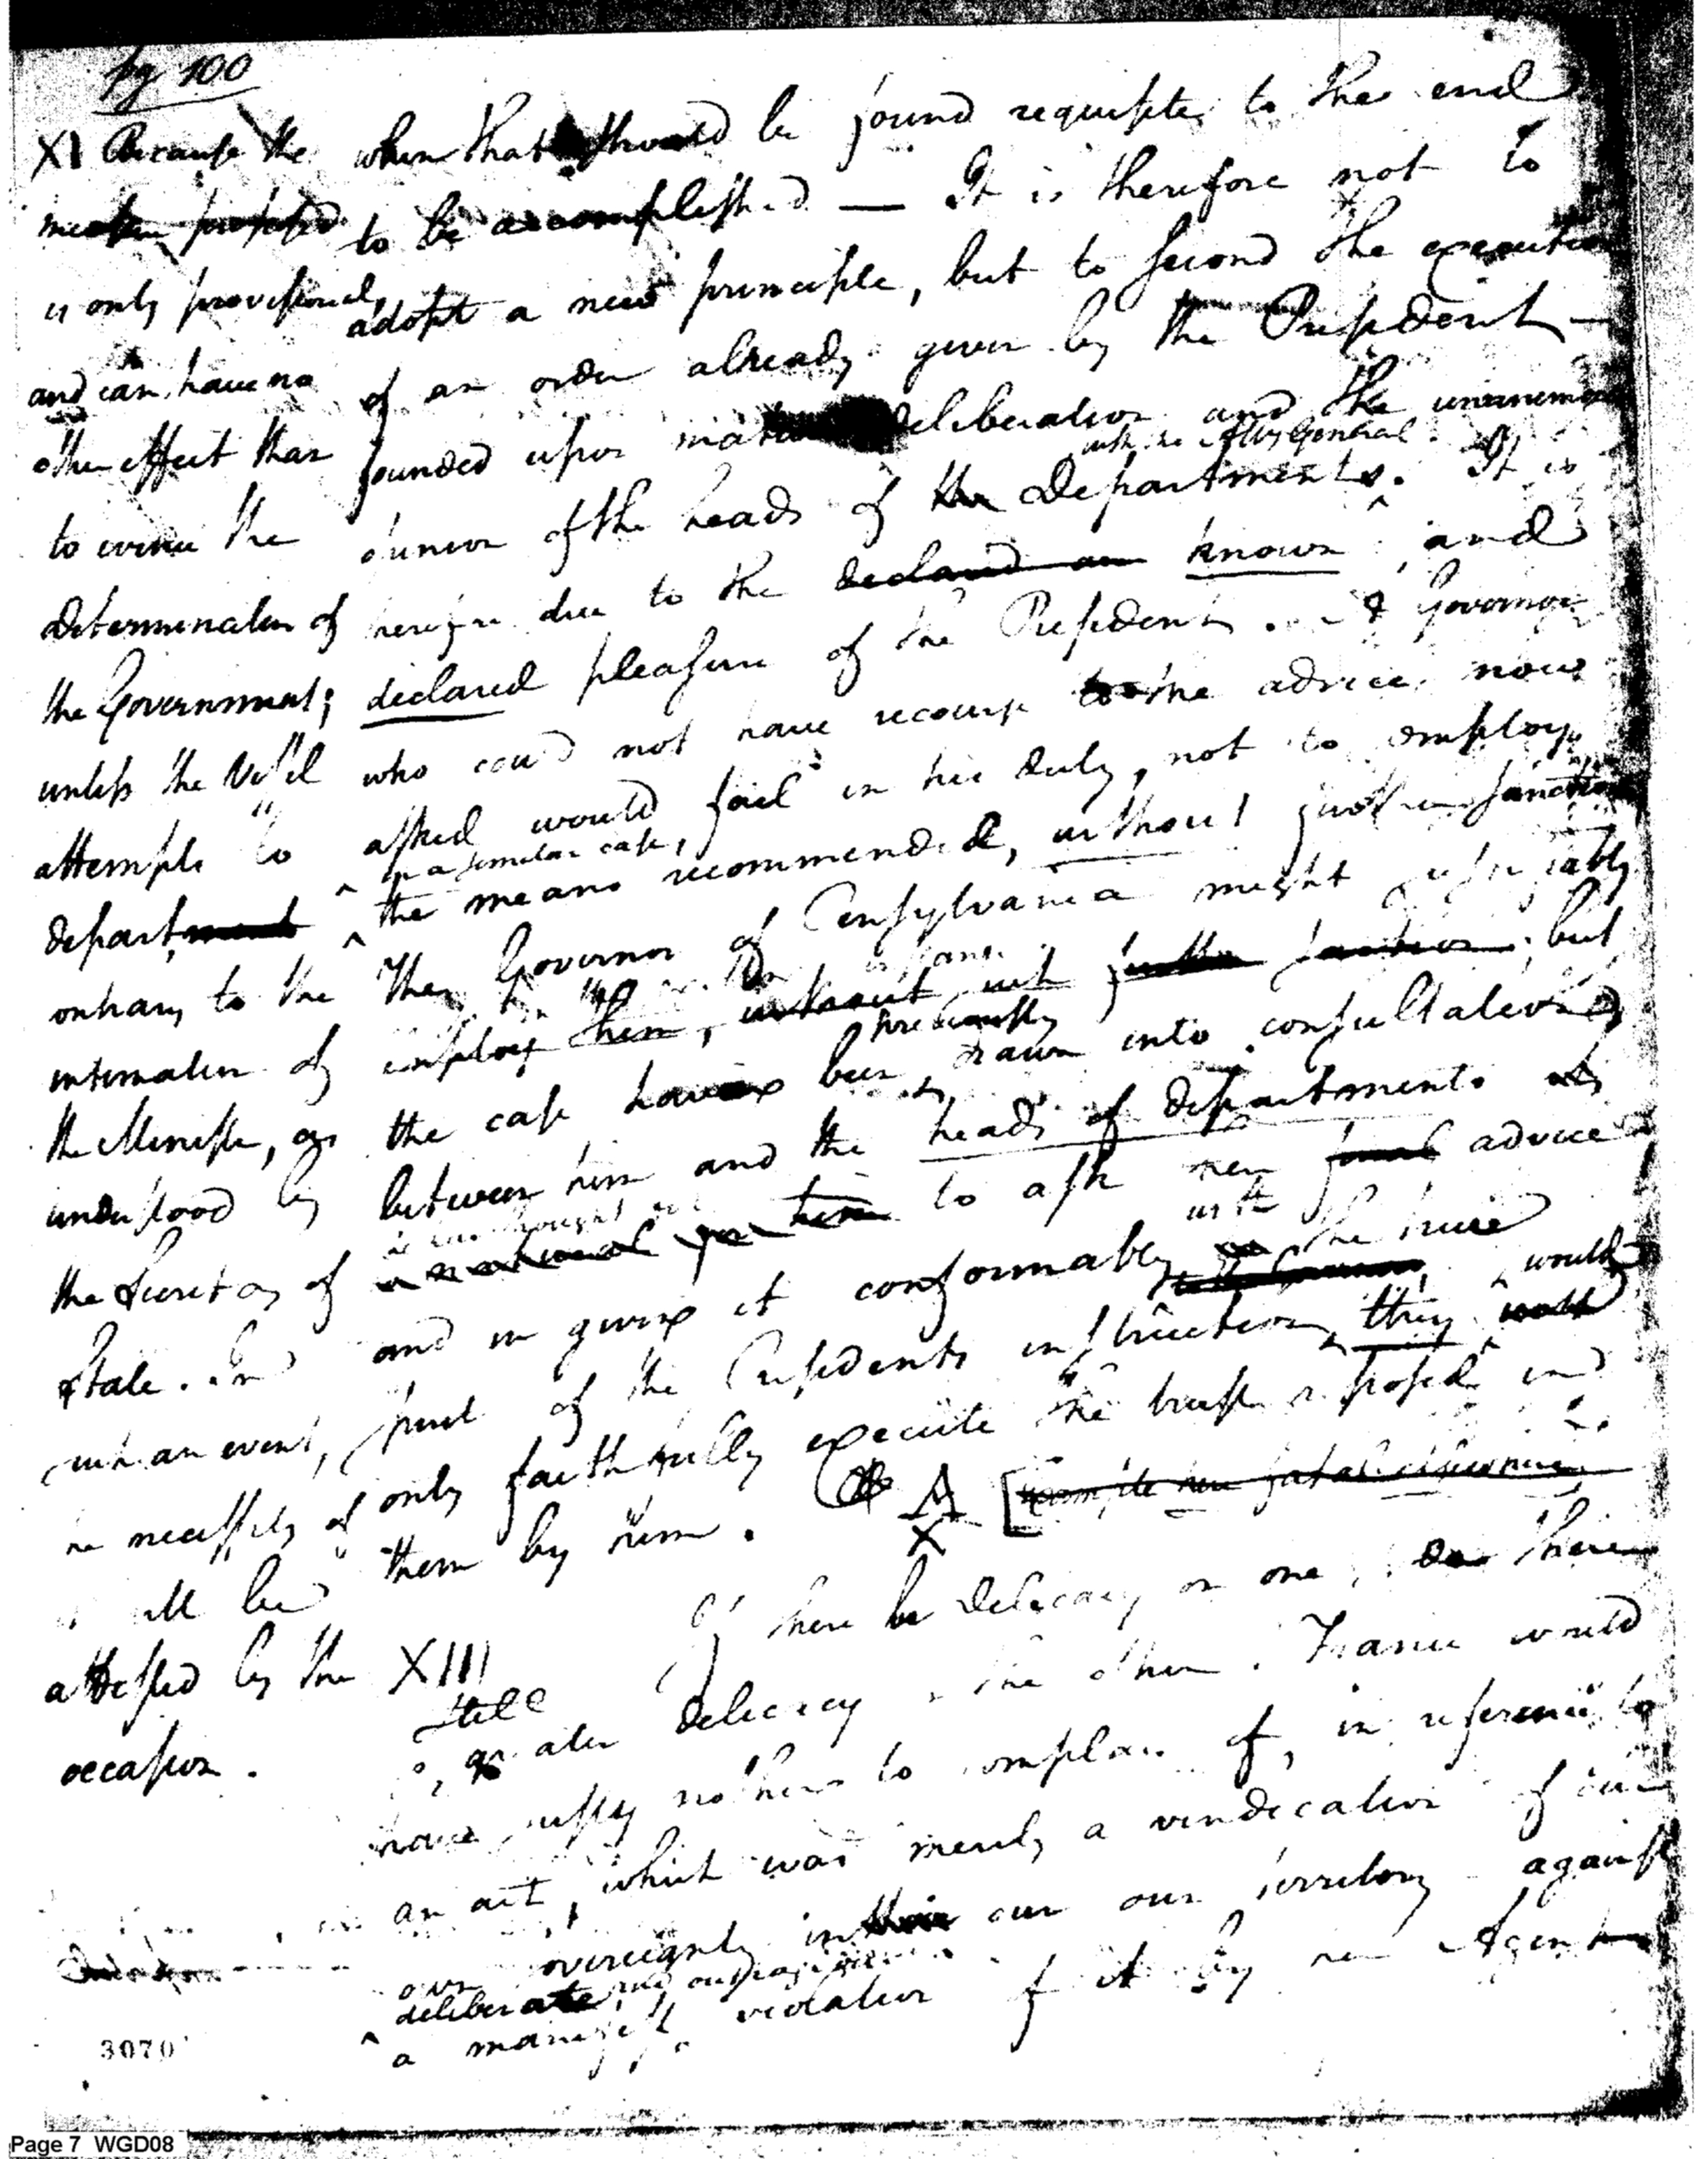 pg 100
XI Because the
measure proposed
is only provisional,
and can have no
other effect than
to evince the
determination of
the Government;
unless the Vessel
attempts to
depart,
contrary to the
intimation of
the Minister, as
understood by
the Secretary of
State. In
such an event,
the necessity of
it will be
attested by the
occasion.
when that should be found requisite to the end
to be accomplished — It is therefore not to
adopt a new principle, but to second the execution
of an order already given by the President —
founded upon mature deliberation and the unanimous
with the Atty General
opinion of the heads of the Departments. It is
therefore due to the declared and known and
declared pleasure of the President. A Governor
who could not have recourse to the advice now
asked would fail in his duty, not to employ
in a similar case,
the means recommended, without further sanction
The Governor of Pensylvania might justifiably
employ them, without further sanction; but
previously
the case having been drawn into consultation
between him and the heads of departments
is thought
him to ask new advice
with
and in giving it conformably the true
would
spirit of the Presidents instructions, they
only faithfully execute the trust reposed in
them by him. A [
X
XIII If there be delicacy on one, there
still
is greater delicacy the other. France would
have justly nothing to complain of, in reference to
an act, which was merely a vindication of our
own sovereignty in our own territory against
deliberate and outrageous
a manifest violation of it by her Agent
3070
Page 7 WGD08